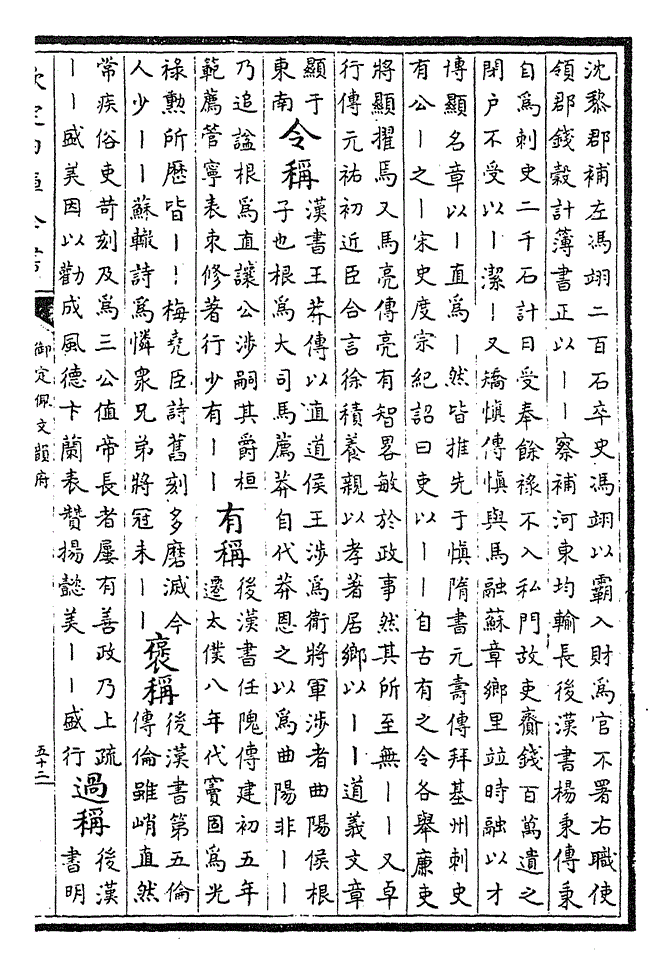 沈黎郡補左馮翊二百石卒史馮翊以霸入財為官不署右職使
領郡錢穀計簿書正以｜｜察補河東均輸長後漢書楊秉傳秉
自為刺史二千石計日受奉餘祿不入私門故吏齎錢百萬遺之
閉戶不受以｜潔｜又矯慎傳慎與馬融蘇章鄉里竝時融以才
博顯名章以｜直為｜然皆推先于慎隋書元壽傳拜基州刺史
有公｜之｜宋史度宗紀詔曰吏以｜｜自古有之今各舉廉吏
將顯擢焉又馬亮傳亮有智畧敏於政事然其所至無｜｜又卓
行傳元祐初近臣合言徐積養親以孝著居鄉以｜｜道義文章
顯于
東南
令稱
漢書王莽傳以直道侯王涉為衛將軍涉者曲陽侯根
子也根為大司馬薦莽自代莽恩之以為曲陽非｜｜
乃追諡根為直讓公涉嗣其爵桓
範薦管寧表束修著行少有｜｜
有稱
後漢書任隗傳建初五年
遷太僕八年代竇固為光
祿勲所歷皆｜｜梅堯臣詩舊刻多磨滅今
人少｜｜蘇轍詩為憐衆兄弟將冠未｜｜
褒稱
後漢書第五倫
傳倫雖峭直然
常疾俗吏苛刻及為三公值帝長者屢有善政乃上疏
｜｜盛美因以勸成風德卞蘭表贊揚懿美｜｜盛行
過稱
後漢
書明
欽定四庫全書
御定佩文韻府
五十二